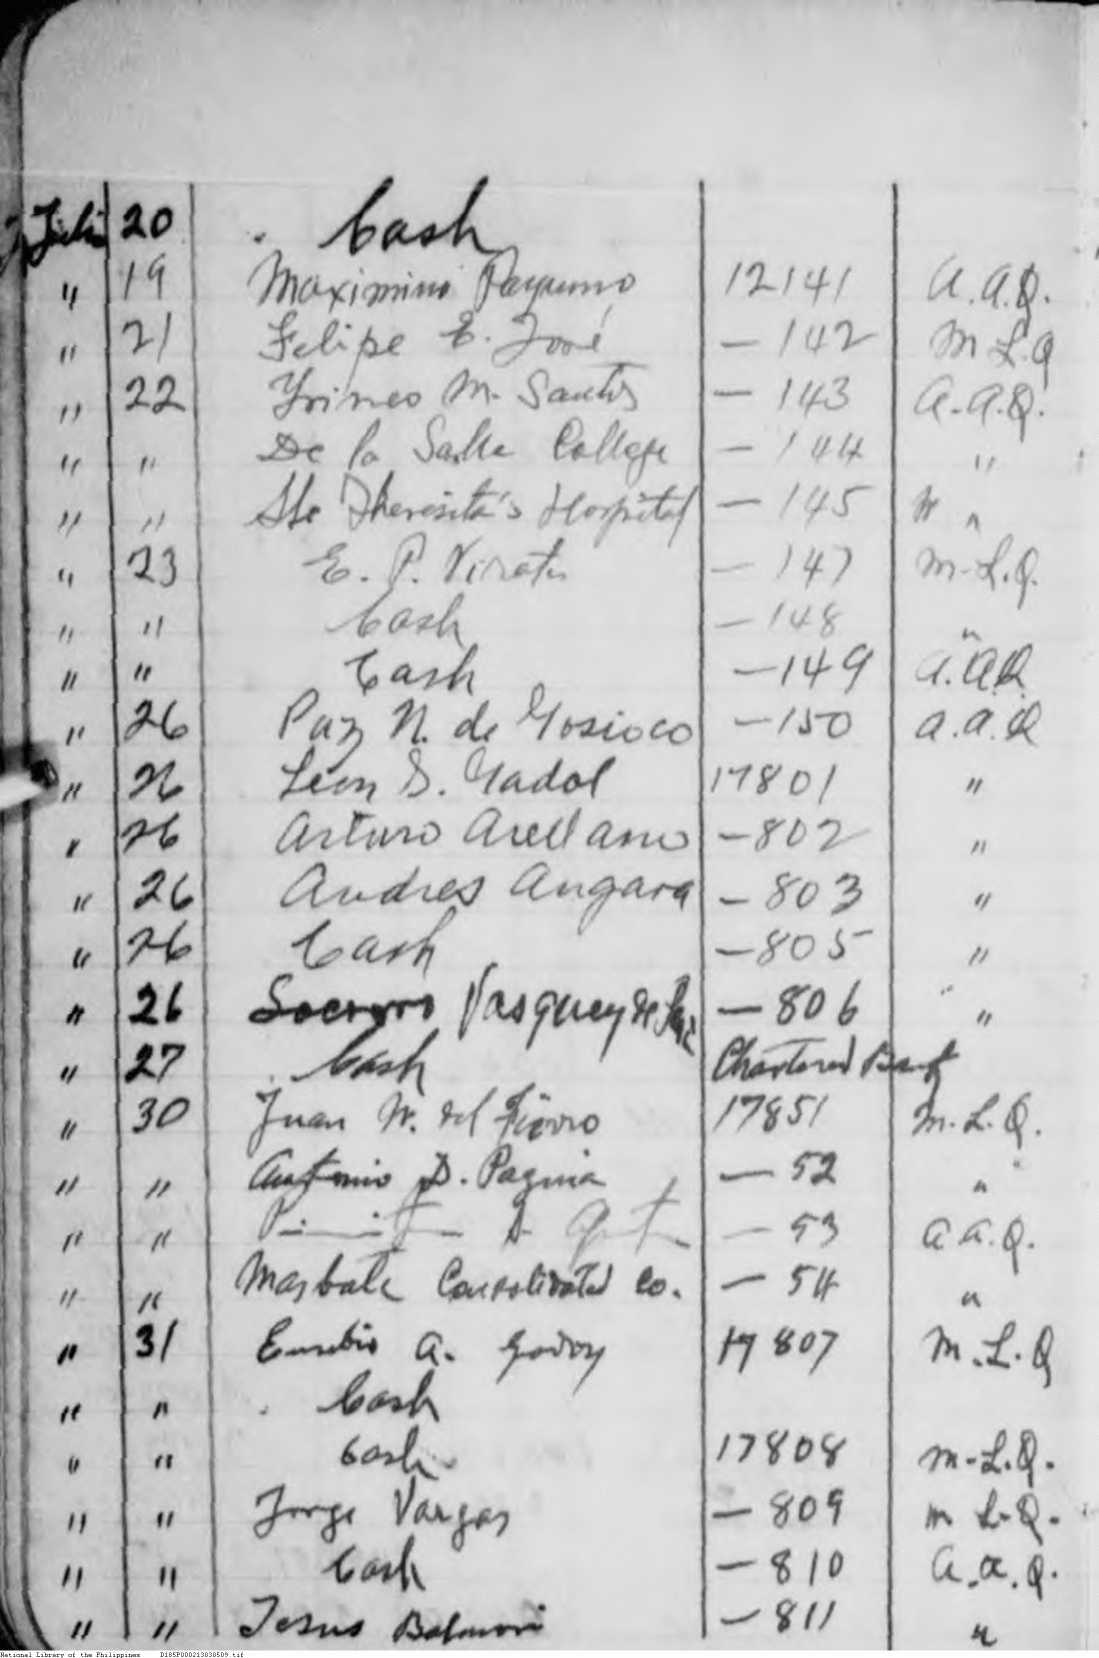 Julio 20 Cash
" 19 Maximino Paguno 12141 A.A.Q.
" 21 Felipe E. José — 142 M L Q
" 22 Yrineo M. Santos — 143 A.A.Q.
" " De la Salle College — 144 "
" " Ste Theresita's Hospital — 145 " "
" 23 E. P. Virata — 147 M.L.Q.
" " Cash — 148 "
" " Cash — 149 A.A.Q
" 26 Paz N. de Gosioco — 150 A.A.Q
" 26 Leon S. Gadol 17801 "
" 26 Arturo Arellano — 802 "
" 26 Andres Angara — 803 "
" 26 Cash — 805 "
" 26 Socorro Vasquez de — 806 "
" 27 Cash Chartered Bank
" 30 Juan N. del Fierro 17851 M.L.Q.
" " Antonio D. Paguia — 52 "
" " — 53 A A.Q.
" " Masbate Consolidated Co. — 54 "
" 31 Eusebio A. Godoy 17807 M.L.Q
" " Cash
" " Cash 17808 M.L.Q.
" " Jorge Vargas — 809 M L.Q.
" " Cash — 810 A.A.Q.
" " Jesus Balmori — 811 "
National Library of the Philippines D185P000213030509.tif